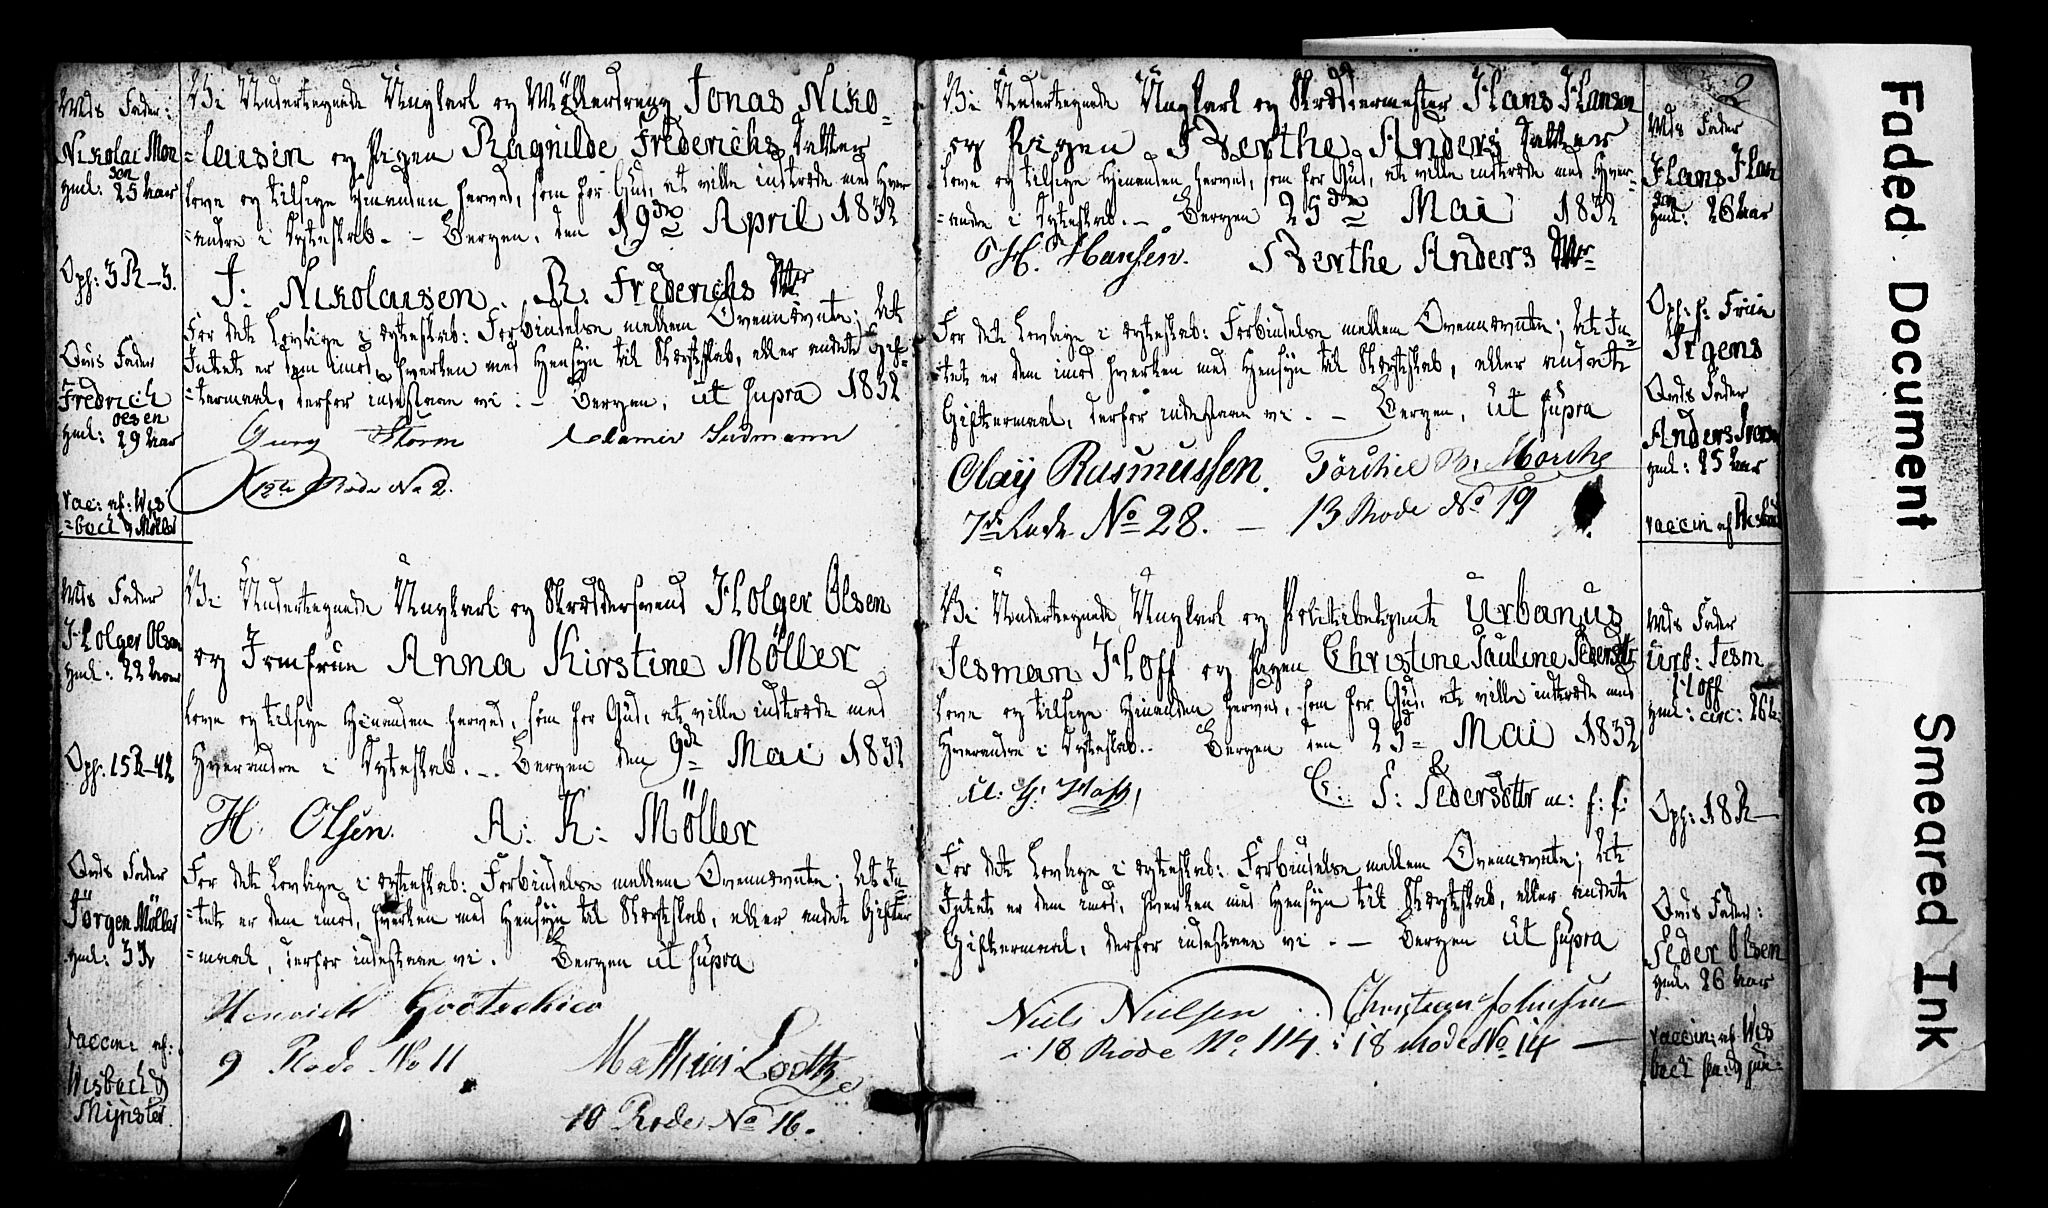 Mds Fader:
Nikolai Mon
sen
gml: 25 Aar
Oph: 3 R – 3.
Qvds Fader
Fredrich
Olsen
gml: 29 Aar
vac: af: Wis
=bech & Möller
Vi Undertegnede Ungkarl og Møllerdreng Jonas Niko=
=laisen og Pigen Ragnilde Frederichs Datter
love og tilsige Hinanden herved, som for Gud, at ville indtræde med Hver
=andre i Ægteskab. – Bergen, den 19de April 1832
J: Nikolaisen. R. Frederichs Dttr
For det Lovlige i ægteskab: Forbindelse mellem Ovennævnte; At
Intet er dem imod, hverken med Hensyn til Slægtskab, eller andet Gif=
=termaal, derfor indestaae vi. – Bergen, ut supra 1832
Storm
Rode No 2.
Mds Fader
Holger Olsen
gml: 22 Aar
Oph: 15 R – 42
Qvds Fader
Jörgen Möller
gml: 33
vaccin: af:
Wisbech &
Mynster
Vi Undertegnede Ungkarl og Skræddersvend Holger Olsen
og Jomfrue Anna Kirstine Møller
love og tilsige Hinanden herved, som for Gud, at ville indtræde med
Hverandre i Ægteskab. – Bergen den 9de Mai 1832
H. Olsen. A: K: Möller
For det Lovlige i ægteskab: Forbindelse mellem Ovennævnte; At In=
=tet er dem imod, hverken med Hensyn til Slægtskab, eller andet Gifter
=maal, derfor indestaae vi. Bergen ut supra
Henrich
9 Rode No 11
Mathias
10 Rode No 16.
2
Vi Undertegnede Ungkarl og Skræddermester Hans Hansen
og Pigen Berthe Anders Datter
love og tilsige Hinanden herved, som for Gud, at ville indtræde med Hver=
=andre i Ægteskab. – Bergen 25de Mai 1832
H. Hansen. Berthe Anders Dttr
For det Lovlige i ægteskab: Forbindelse mellem Ovennævnte; At In=
=tet er dem imod hverken med Hensyn til Slægtskab, eller andet
Giftermaal, derfor indestaae vi. – Bergen, ut supra
Olaij Rasmussen.
7de Rode No 28. – 13 Rode No 19
Mds Fader
Hans Han
sen
gml: 26 Aar
Oph: f: Friis
Irgens
Qvds Fader
Anders Iversen
gml: 25 Aar
vaccin af
Vi Undertegnede Ungkarl og Politibetjente Urbanus
Jesman Hoff og Pigen Christine Pauline Pedersdttr
love og tilsige Hinanden herved, som for Gud, at ville indtræde med
Hverandre i Ægteskab. – Bergen den 25de Mai 1832
U: J: Hoff, C: P: Pedersdttr m: f: f:
For det Lovlige i ægteskab: Forbindelse mellem Ovennævnte; At
Intet er dem imod, hverken med Hensyn til Slægtskab, eller andet
Giftermaal, derfor indestaae vi. – Bergen ut supra
Niels Nielsen Christian Johnsen
i 18 Rode No 114. i 18 Rode No 14 –
Mds Fader
Urb: Jesm
Hoff
gml: circ: 26
Oph: 18 R –
Qvds Fader:
Peder Olsen
gml: 26 Aar
vaccin: af Wis
bech sen: & jun:
Faded Document
Smeared Ink